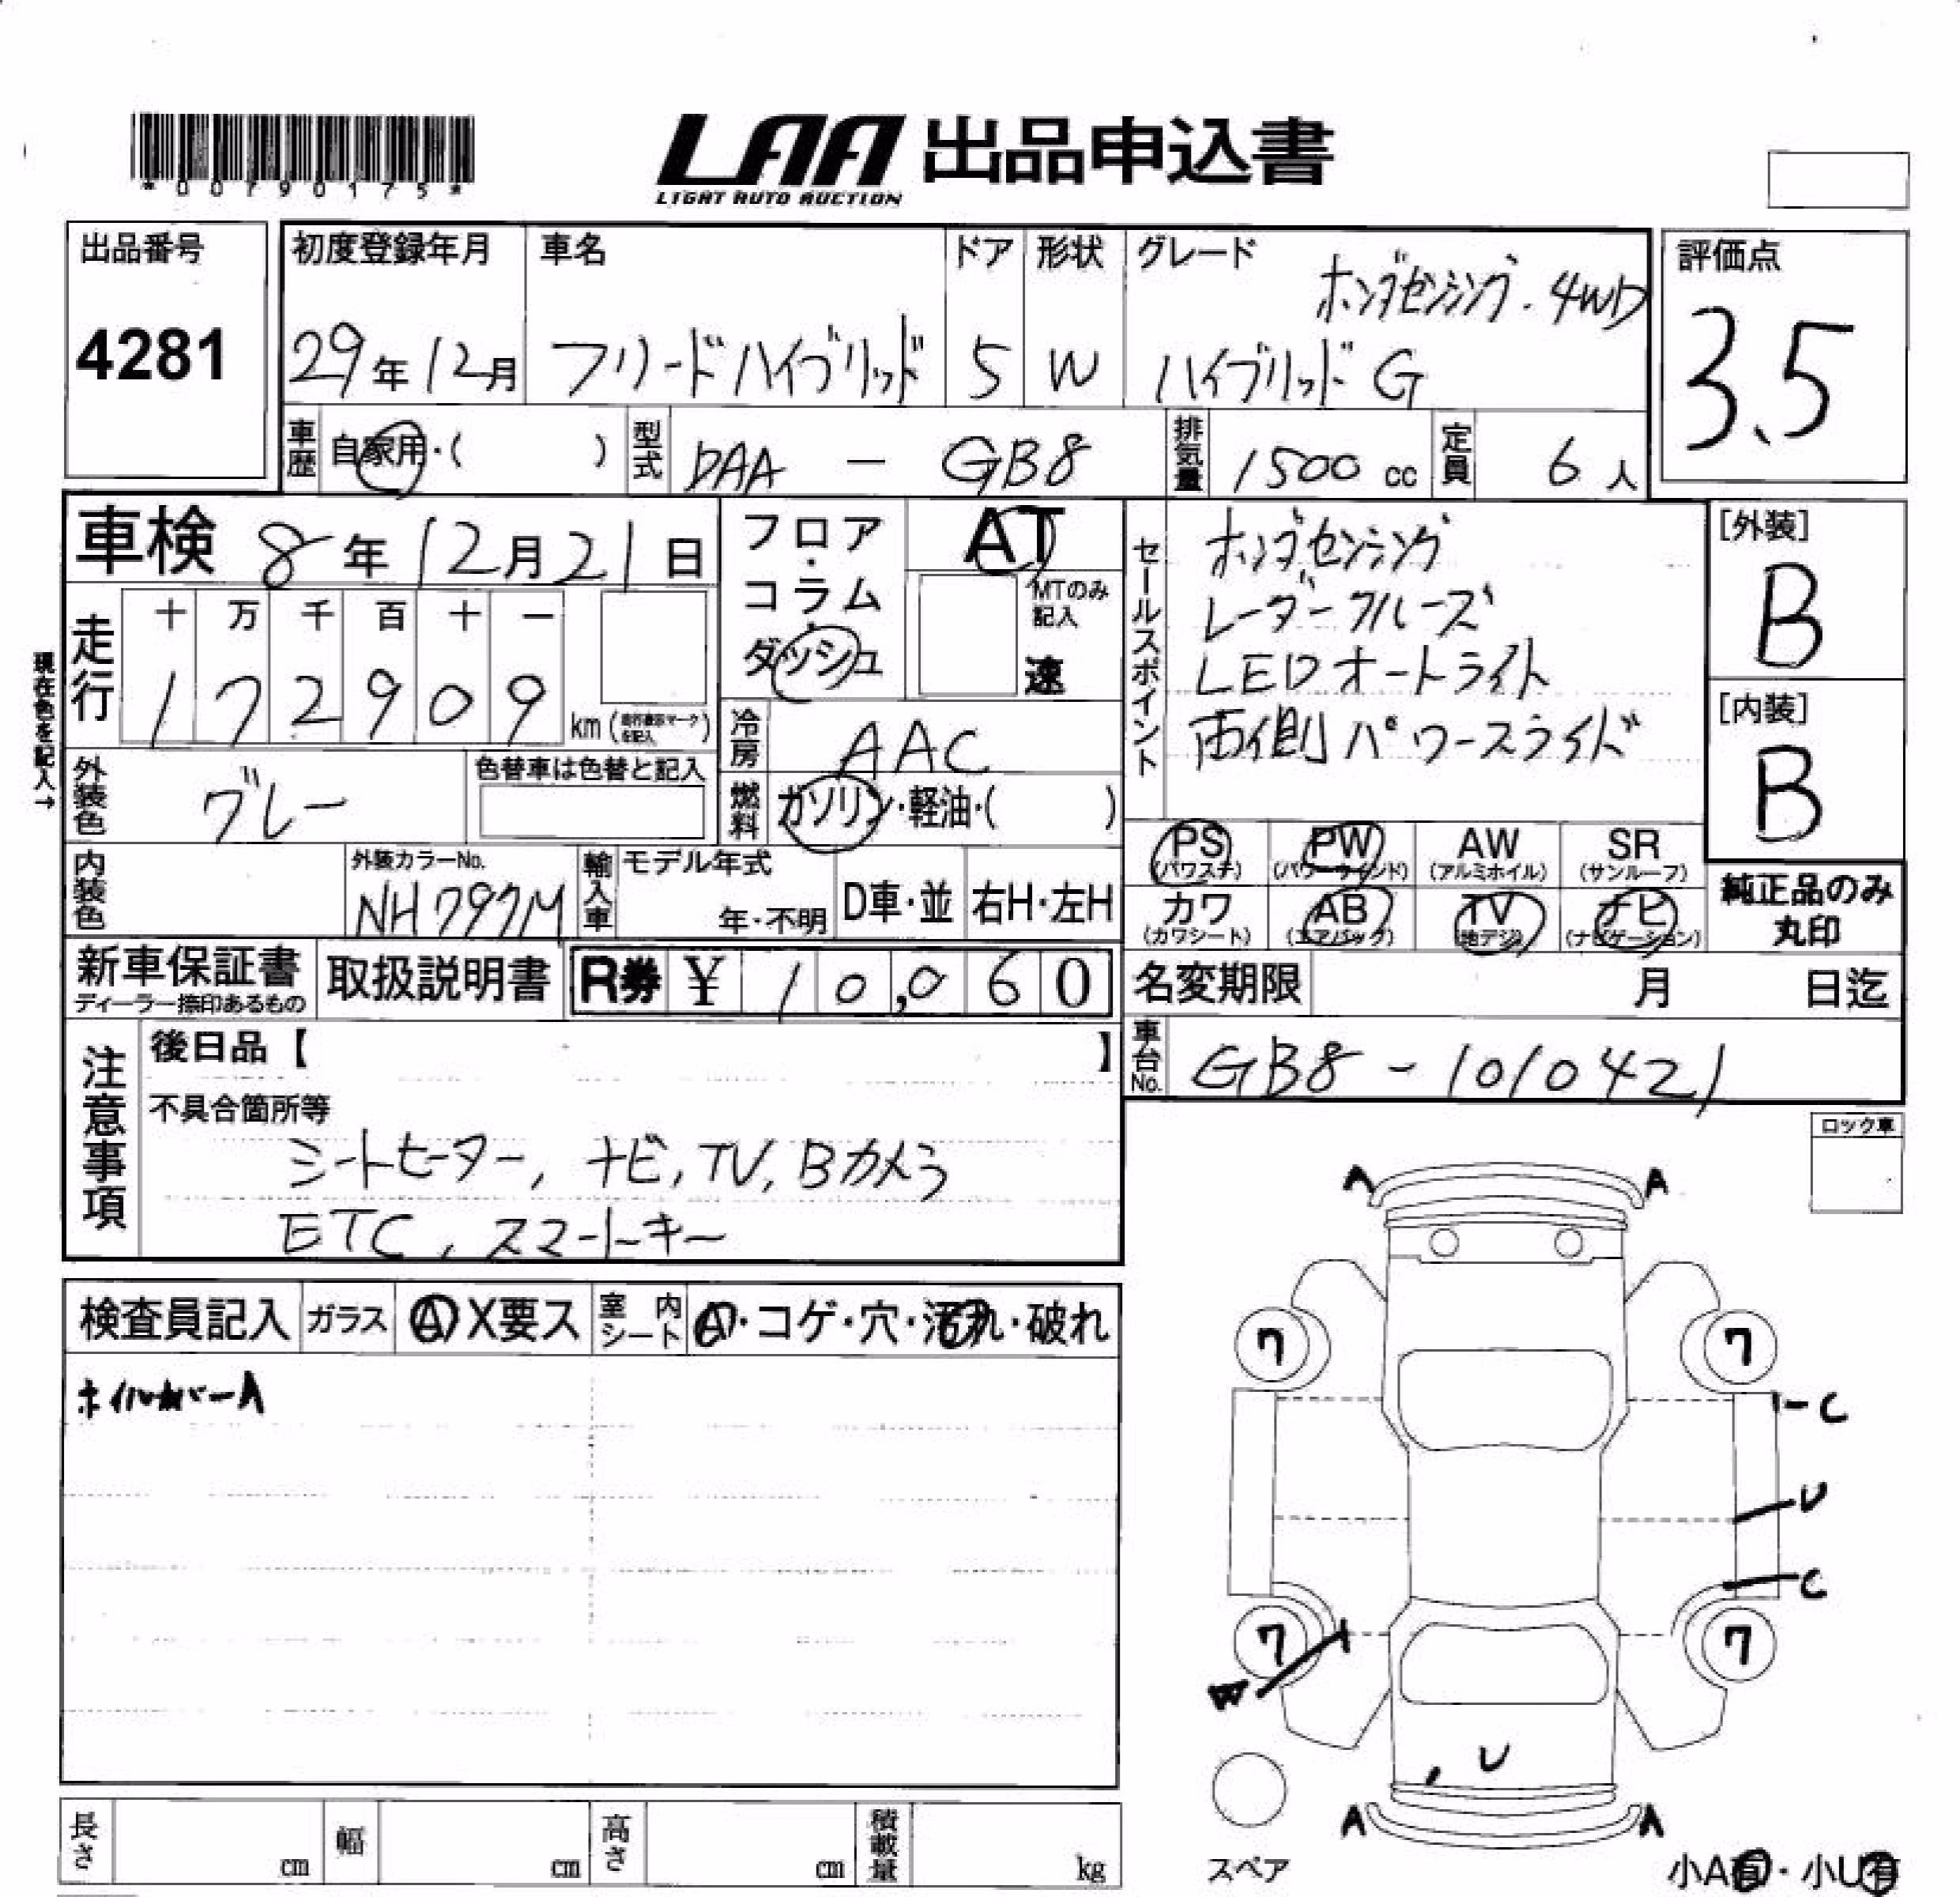 *00790175*
LAA 出品申込書
LIGHT AUTO AUCTION
出品番号
4281
初度登録年月
29年12月
車名
フリードハイブリッド
ドア
5
形状
W
グレード
ホンダセンシング・4WD
ハイブリッド G
評価点
3.5
車歴 自家用・( )
型式 DAA - GB8
排気量 1500 cc
定員 6人
車検 8年12月21日
フロア・コラム・ダッシュ
AT
MTのみ記入
速
セールスポイント
ホンダセンシング
レーダークルーズ
LEDオートライト
両側パワースライド
[外装]
B
[内装]
B
現在色を記入→
走行
十 万 千 百 十 一
1 7 2 9 0 9 km (走行表示マークを記入)
冷房 AAC
燃料 ガソリン・軽油・( )
外装色 グレー
色替車は色替と記入
内装色
外装カラーNo.
NH797M
輸入車 モデル年式
年・不明
D車・並 右H・左H
PS (パワステ)
PW (パワーウインド)
AW (アルミホイル)
SR (サンルーフ)
カワ (カワシート)
AB (エアバック)
TV (地デジ)
ナビ (ナビゲーション)
純正品のみ
丸印
新車保証書
ディーラー捺印あるもの
取扱説明書
R券 ¥ 10,060
名変期限 月 日迄
車台No. GB8-1010421
注意事項
後日品【 】
不具合箇所等
シートヒーター, ナビ, TV, Bカメラ
ETC, スマートキー
ロック車
検査員記入 ガラス A X要ス 室内シート A・コゲ・穴・汚れ・破れ
ホイルカバーA
A A
7 7
C
U
C
7 7
W
U
A A
スペア
小A有・小U有
長さ cm 幅 cm 高さ cm 積載量 kg